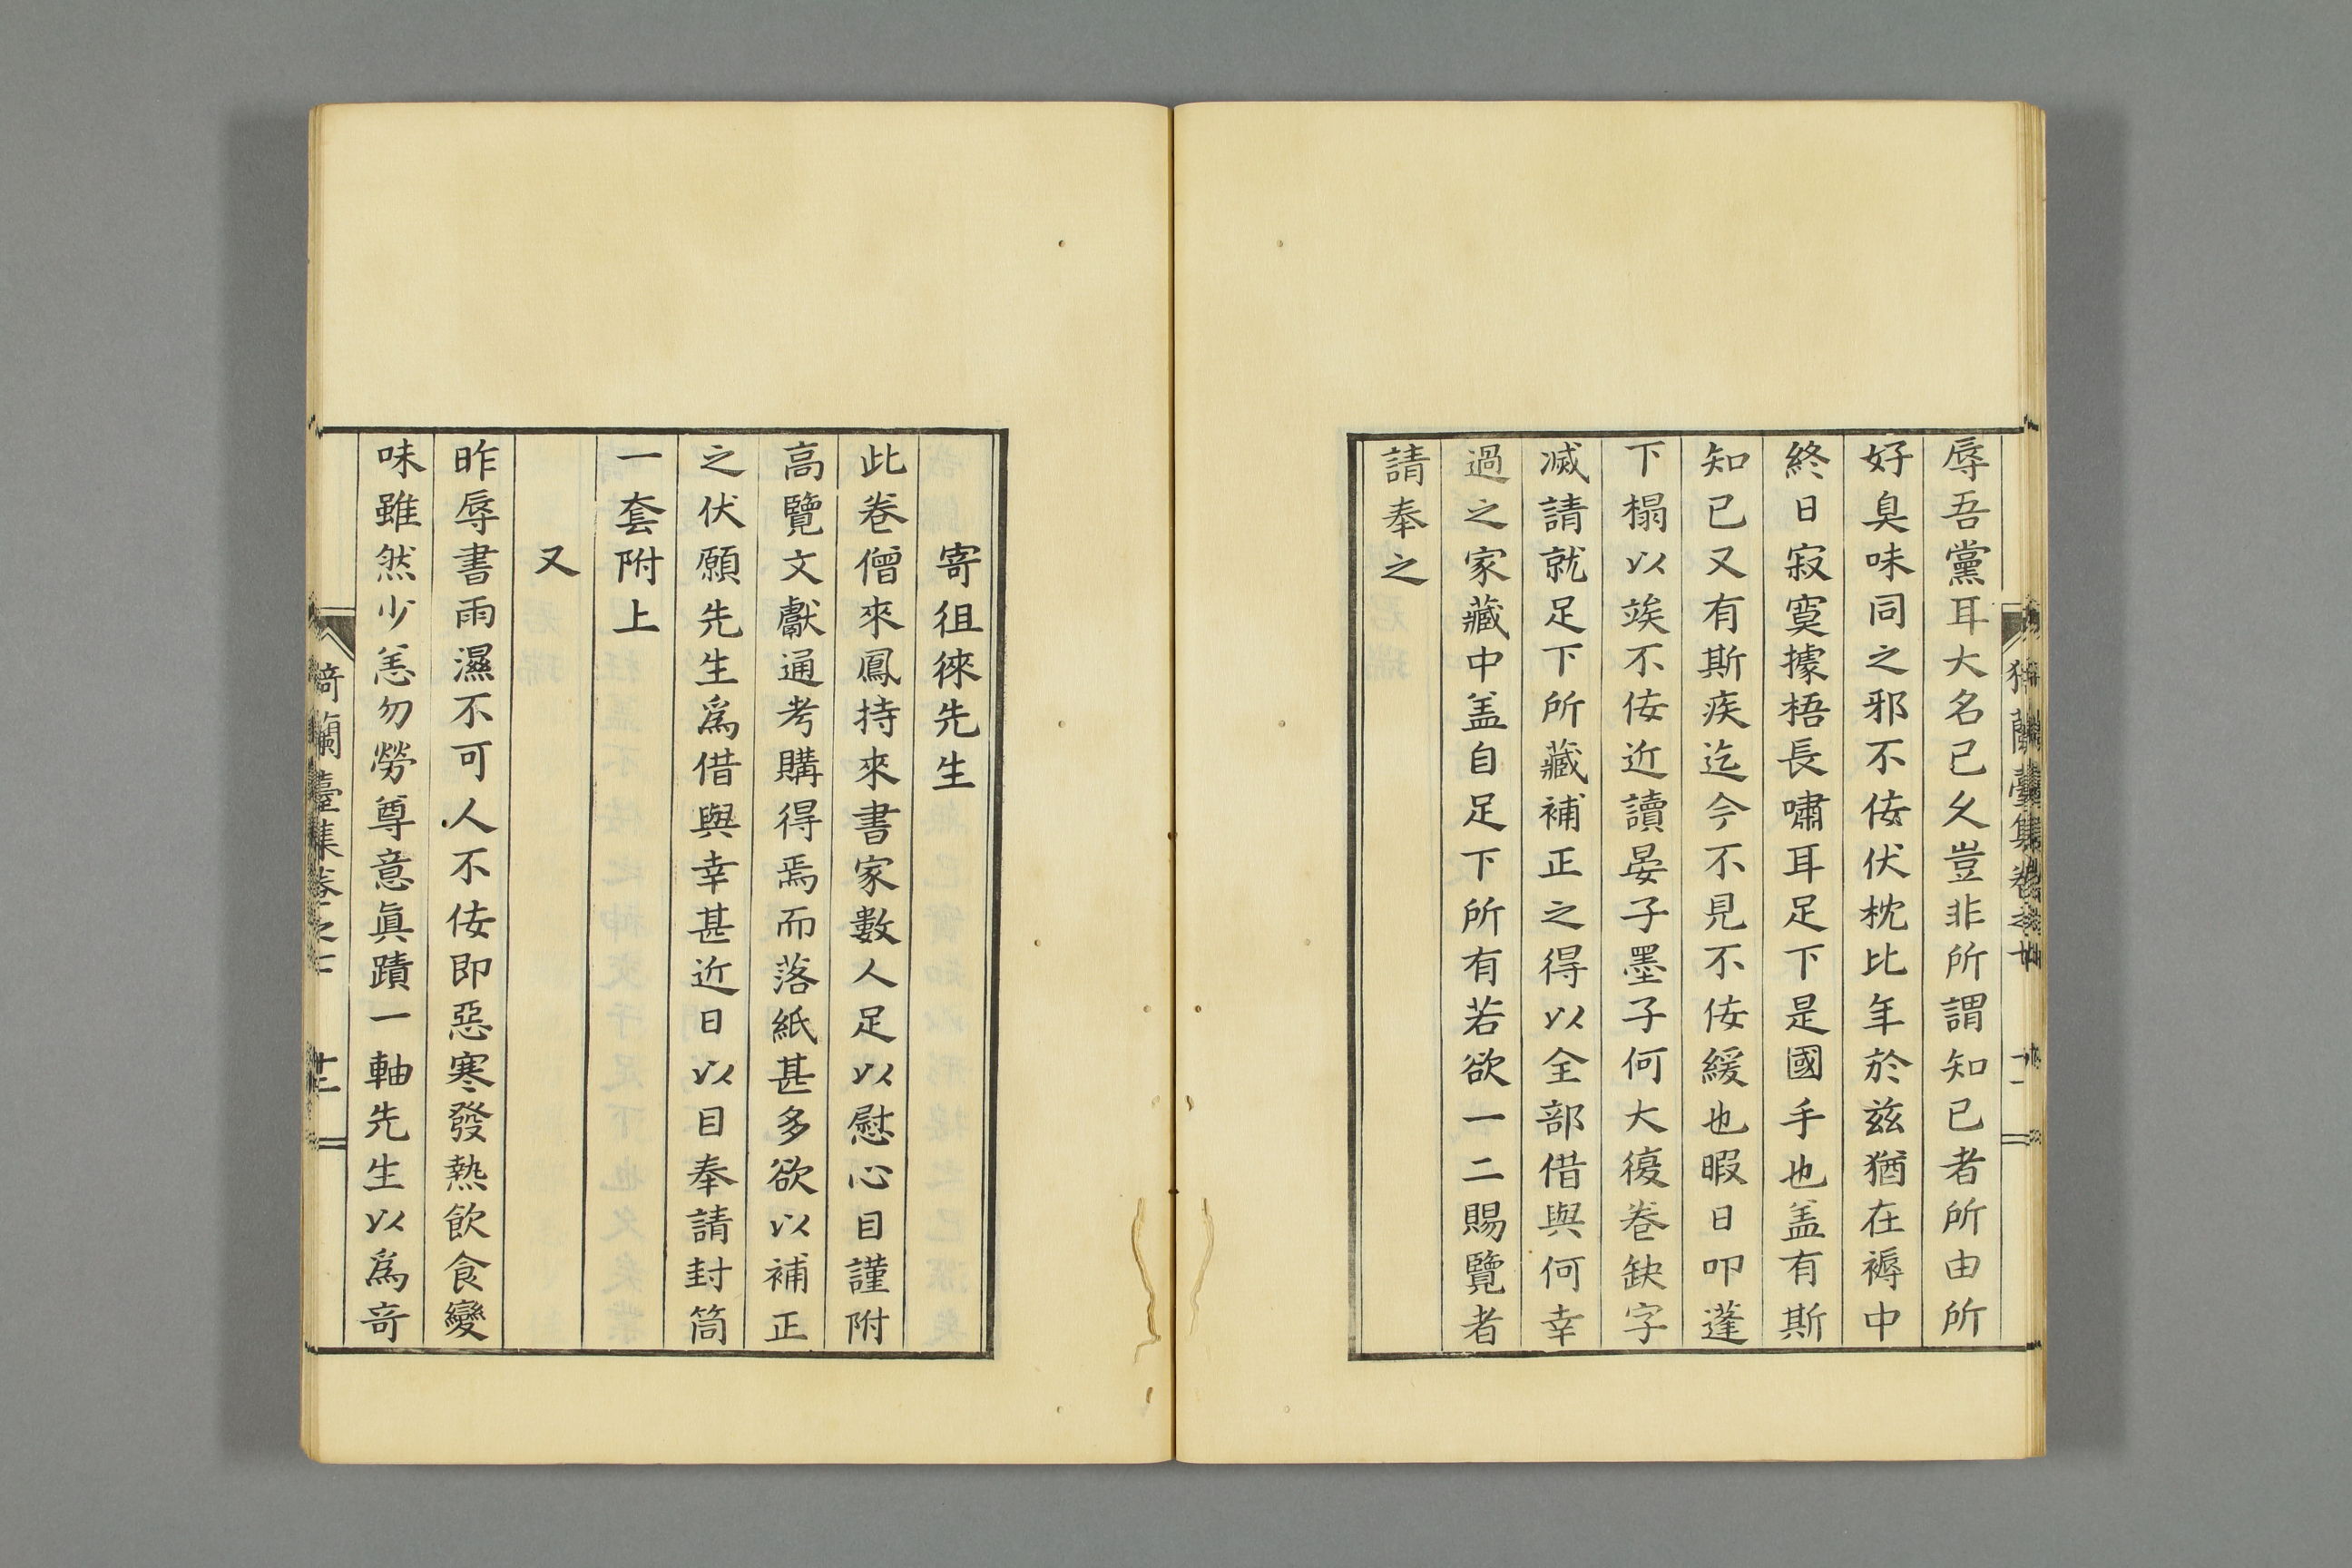 辱吾黨耳大名已久豈非所謂知已者所由所
好臭味同之邪不佞伏枕比年於兹猶在褥中
終日寂寞據梧長嘯耳足下是國手也盖有斯
知已又有斯疾迄今不見不佞緩也暇日叩蓬
下榻以竢不佞近讀晏子墨子何大復卷缺字
滅請就足下所藏補正之得以全部借與何幸
過之家藏中盖自足下所有若欲一二賜覽者
請奉之
寄徂徠先生
此卷僧來鳳持來書家數人足以慰心目謹附
高覽文獻通考購得焉而落紙甚多欲以補正
之伏願先生爲借與幸甚近日以目奉請封筒
一套附上
又
昨辱書雨濕不可人不佞即惡寒發熱飲食變
味雖然少恙勿勞尊意眞蹟一軸先生以爲竒
猗蘭臺集卷之七 十二